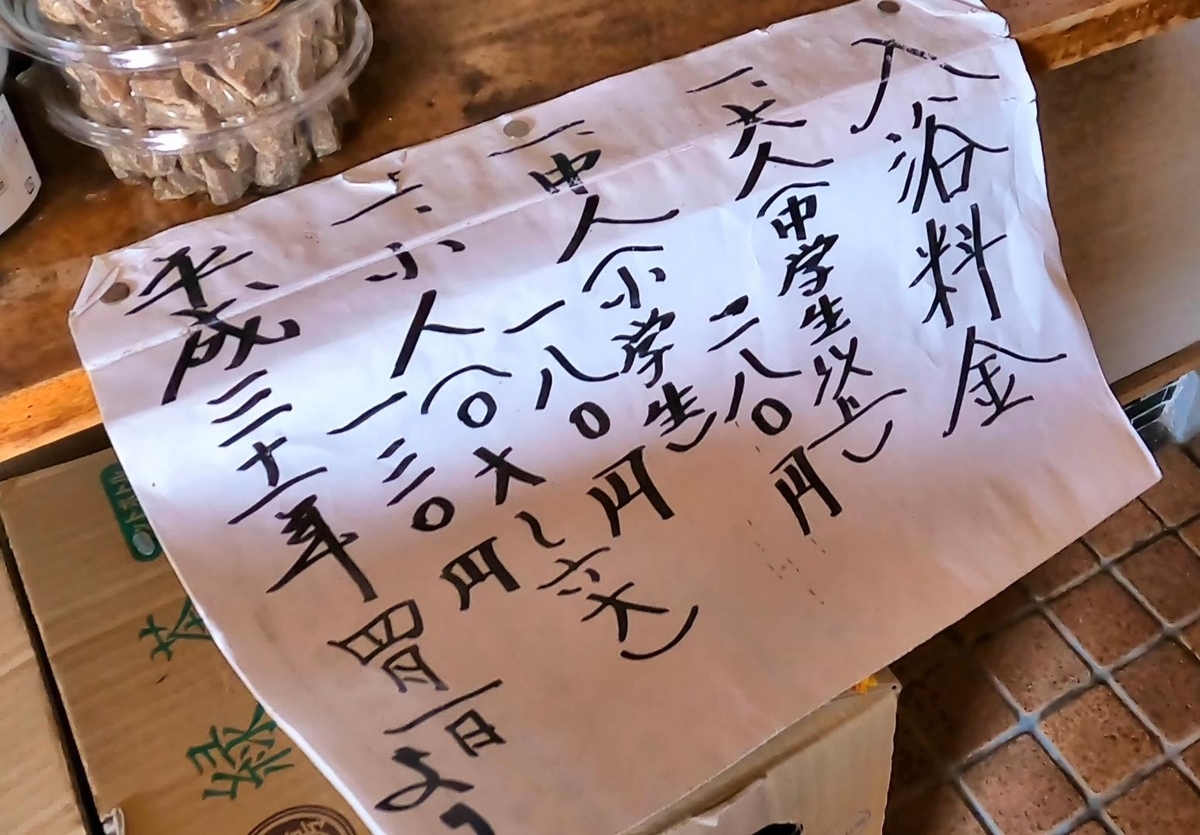 入浴料金
一、大人(中学生以上)
二八〇円
一、中人(小学生)
一八〇円
一、小人(〇才〜六才)
一三〇円
平成三十一年四月一日より